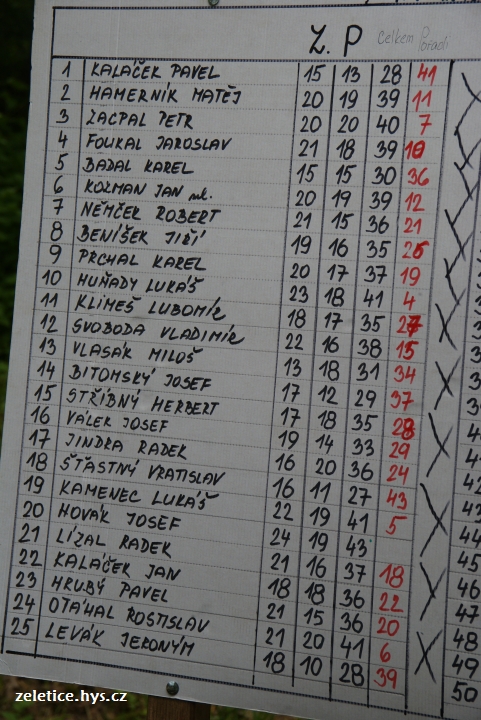 Z. P Celkem Pořadí
1 KALÁČEK PAVEL 15 13 28 41
2 HAMERNÍK MATĚJ 20 19 39 11
3 ZACPAL PETR 20 20 40 7
4 FOUKAL JAROSLAV 21 18 39 10
5 BADAL KAREL 15 15 30 36
6 KOZMAN JAN ml. 20 19 39 12
7 NĚMČEK ROBERT 21 15 36 21
8 BENÍŠEK JIŘÍ 19 16 35
9 PRCHAL KAREL 20 17 37 19
10 HUŇADY LUKÁŠ 23 18 41 4
11 KLIMEŠ LUBOMÍR 18 17 35 27
12 SVOBODA VLADIMÍR 22 16 38 15
13 VLASÁK MILOŠ 13 18 31 34
14 BITOMSKÝ JOSEF 17 12 29 37
15 STŘÍBNÝ HERBERT 17 18 35 28
16 VÁLEK JOSEF 19 14 33 29
17 JINDRA RADEK 16 20 36 24
18 ŠŤASTNÝ VRATISLAV 16 11 27 43
19 KAMENEC LUKÁŠ 22 19 41 5
20 NOVÁK JOSEF 24 19 43 45
21 LÍZAL RADEK 21 16 37 18 46
22 KALÁČEK JAN 18 18 36 22 47
23 HRUBÝ PAVEL 21 15 36 20 48
24 OTÁHAL ROSTISLAV 21 20 41 6 49
25 LEVÁK JERONÝM 18 10 28 39 50
zeletice.hys.cz